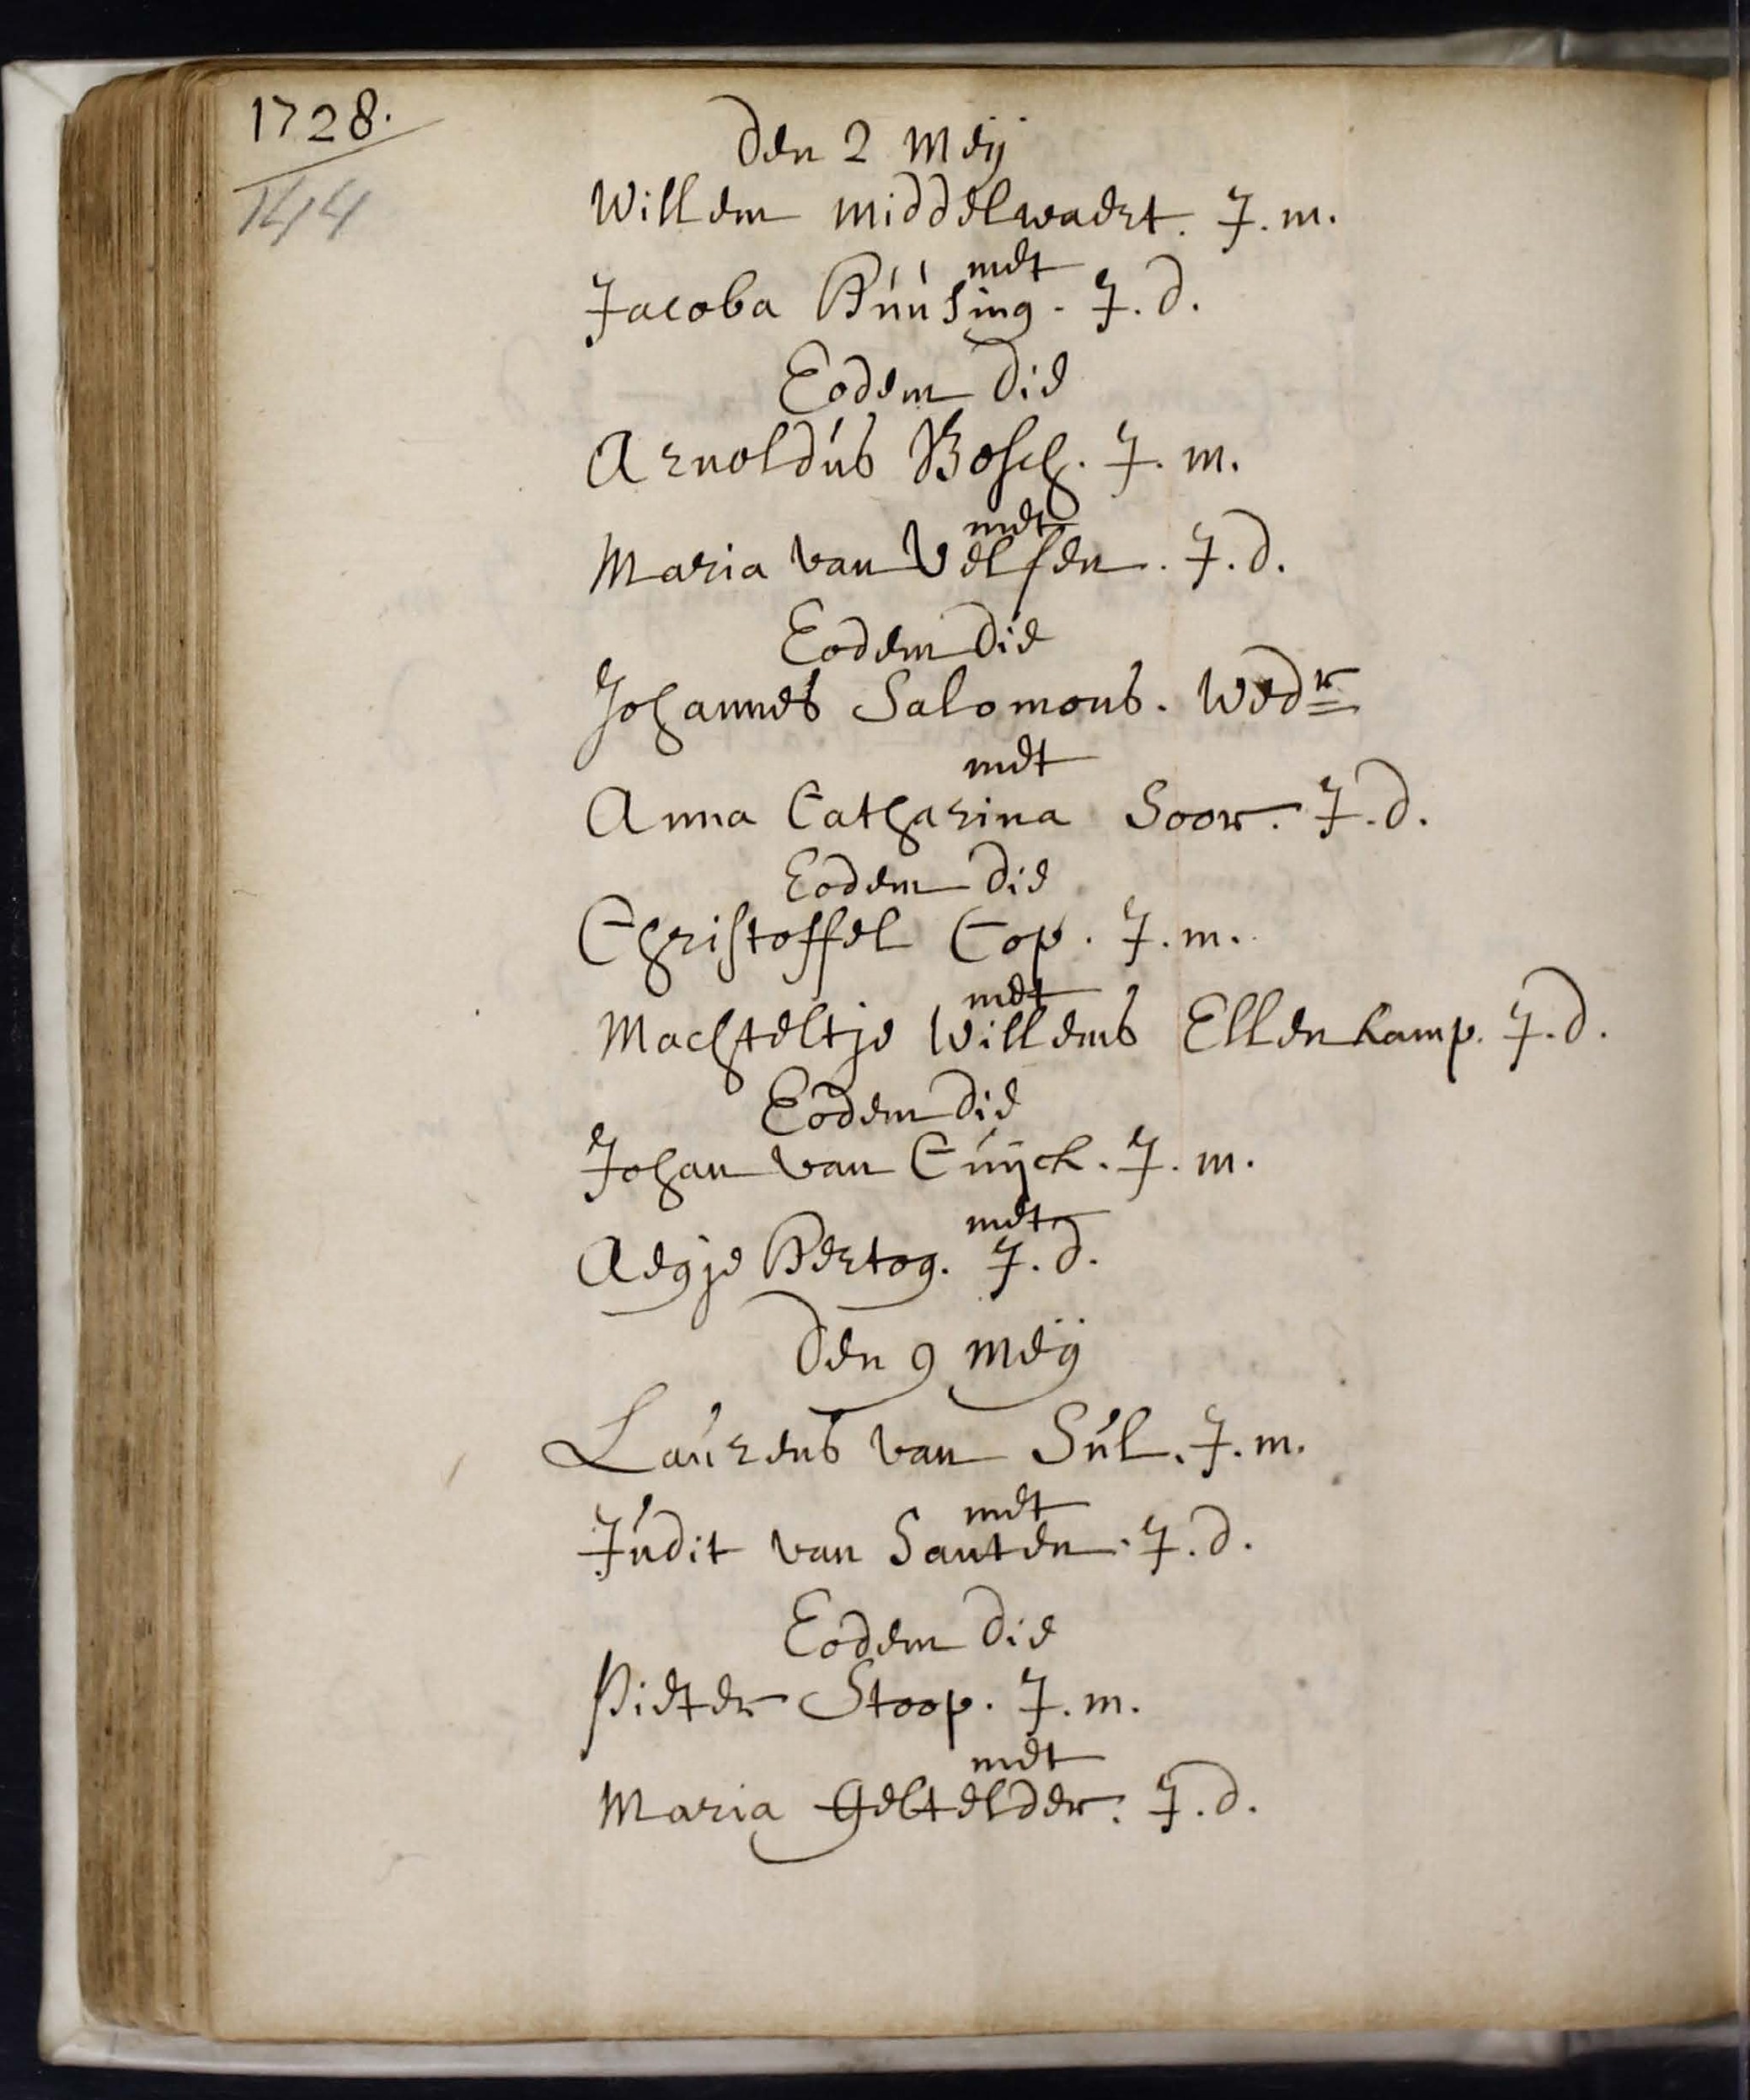 1728.
144
Den 2 Meij
Willem middelwaert. J. m.
met
Jacoba Huusing. J. d.
Eodem Die
Arnoldus Bosch. J. m.
met
Maria van Velsen. J. d.
Eodem Die
Johannes Salomons. Wedr
met
Anna Catharina Soor. J. d.
Eodem Die
Christoffel Cop. J. m.
met
Machteltje Willems Ellenkamp. J. d.
Eodem Die
Johan van Cuijck. J. m.
met
Aegje Hertog. J. d.
Den 9 Meij
Laurens van Sul. J. m.
met
Judit van Santen. J. d.
Eodem Die
Pieter Stoop. J. m.
met
Maria Gestelder. J. d.